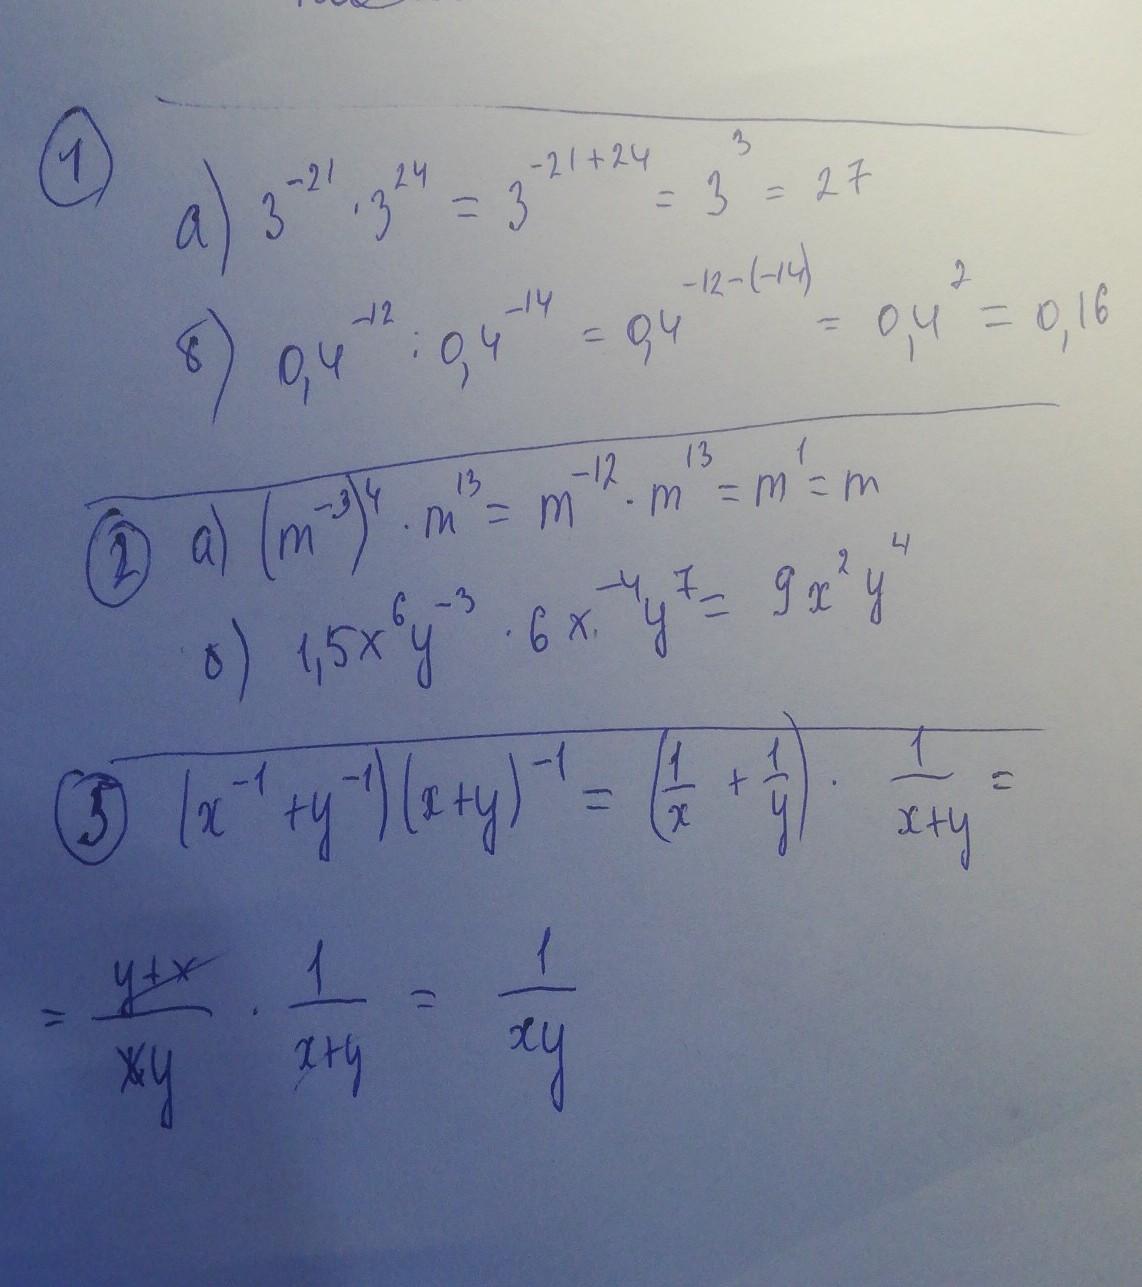 1
а) 3^{-21} · 3^{24} = 3^{-21+24} = 3^3 = 27
б) 0,4^{-12} : 0,4^{-14} = 0,4^{-12-(-14)} = 0,4^2 = 0,16
2 а) (m^{-3})^4 · m^{13} = m^{-12} · m^{13} = m^1 = m
б) 1,5x^6y^{-3} · 6x^{-4}y^7 = 9x^2y^4
3 (x^{-1}+y^{-1})(x+y)^{-1} = (1/x + 1/y) · 1/(x+y) =
= (y+x)/(xy) · 1/(x+y) = 1/(xy)